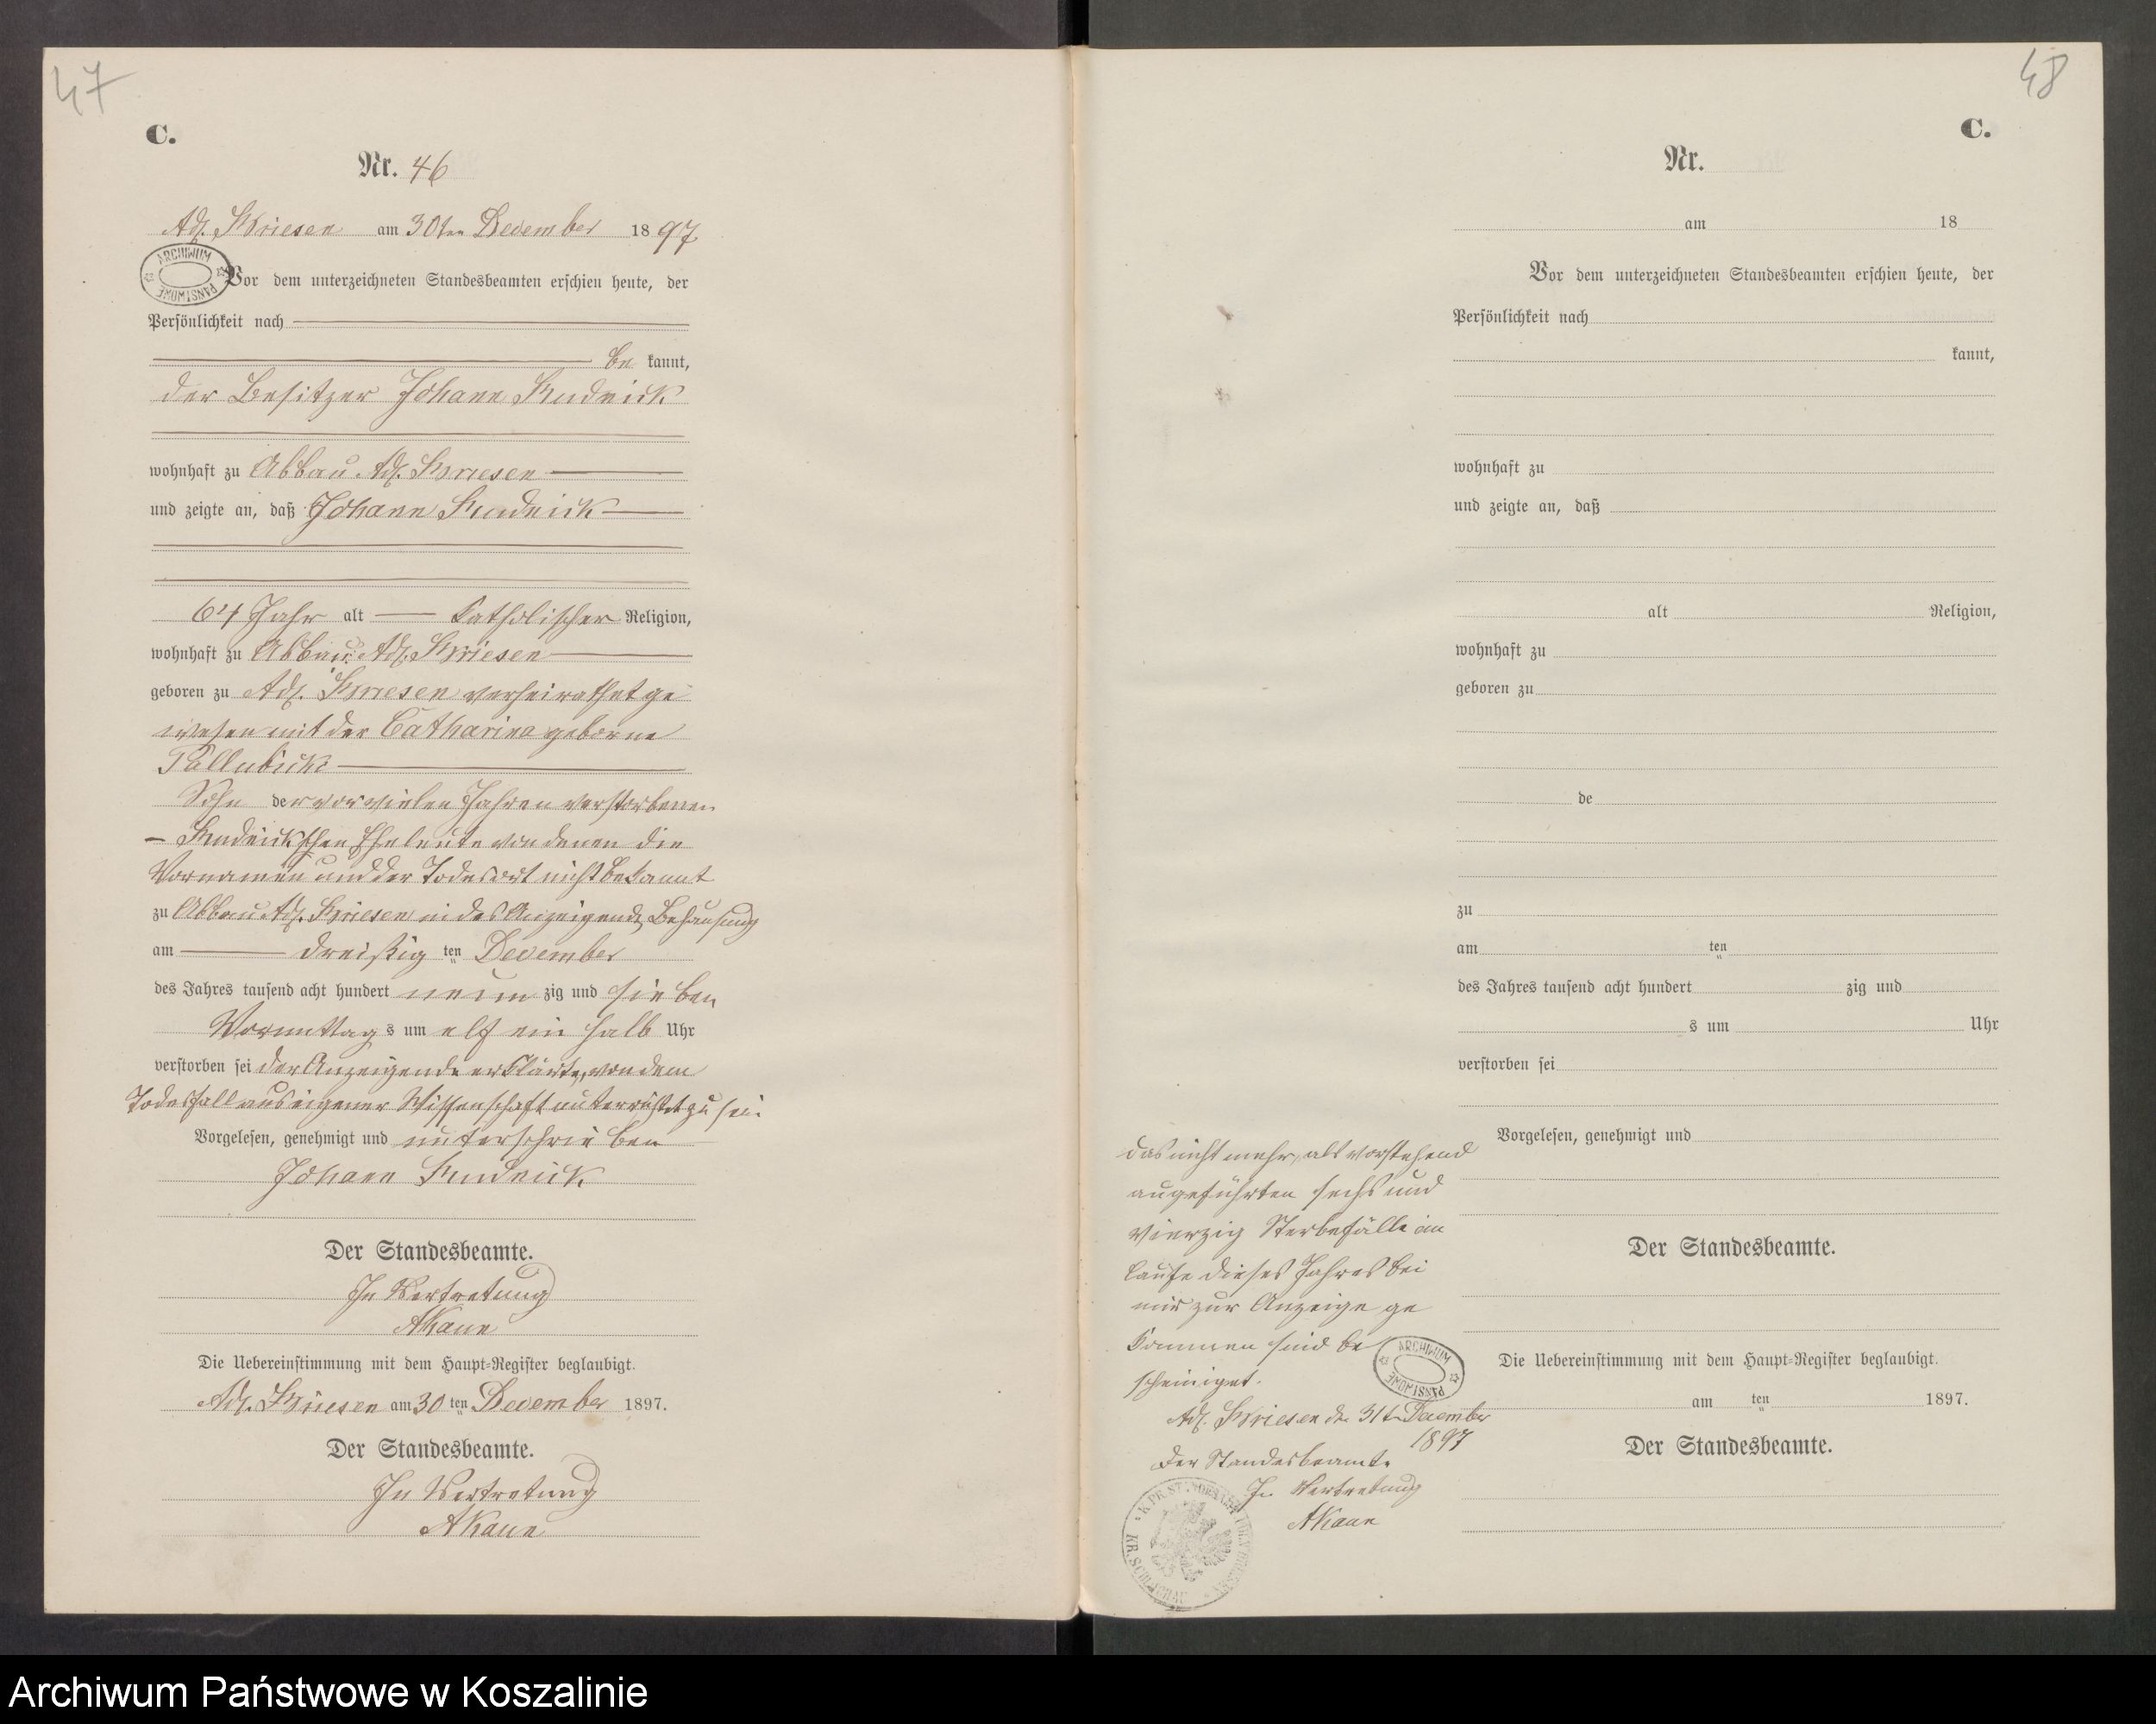 47
C.
Nr. 46
Adl. Briesen am 30ten December 1897
ARCHIWUM PAŃSTWOWE
Vor dem unterzeichneten Standesbeamten erschien heute, der
Persönlichkeit nach
be kannt,
der Besitzer Johann Rudnick
wohnhaft zu Abbau Adl. Briesen
und zeigte an, daß Johann Rudnick
64 Jahr alt katholischer Religion,
wohnhaft zu Abbau Adl. Briesen
geboren zu Adl. Briesen verheirathet ge
wesen mit der Catharina geborne
Pallubicki
Sohn der vor vielen Jahren verstorbenen
Rudnickschen Eheleute von denen die
Vornamen und der Todesort nicht bekannt
zu Abbau Adl. Briesen in des Anzeigends Behausung
am dreißig ten December
des Jahres tausend acht hundert neun zig und sieben
Vormittag s um elf ein halb Uhr
verstorben sei der Anzeigende erklärte, von dem
Todesfall aus eigener Wissenschaft unterrichtet zu sein.
Vorgelesen, genehmigt und unterschrieben
Johann Rudnick
Der Standesbeamte.
In Vertretung
AKaun
Die Uebereinstimmung mit dem Haupt-Register beglaubigt.
Adl. Briesen am 30 ten December 1897.
Der Standesbeamte.
In Vertretung
AKaun
48
C.
Nr.
am 18
Vor dem unterzeichneten Standesbeamten erschien heute, der
Persönlichkeit nach
kannt,
wohnhaft zu
und zeigte an, daß
alt Religion,
wohnhaft zu
geboren zu
de
zu
am ten
des Jahres tausend acht hundert zig und
s um Uhr
verstorben sei
Vorgelesen, genehmigt und
Der Standesbeamte.
Die Uebereinstimmung mit dem Haupt-Register beglaubigt.
am ten 1897.
Der Standesbeamte.
das nicht mehr, als vorstehend
angeführten sechs und
vierzig Sterbefälle im
Laufe dieses Jahres bei
mir zur Anzeige ge
kommen sind be
scheiniget.
ARCHIWUM PAŃSTWOWE
Adl. Briesen den 31t December
1897
Der Standesbeamte
In Vertretung
AKaun
K. PR. STANDESAMT
KR. SCHLOCHAU
Archiwum Państwowe w Koszalinie